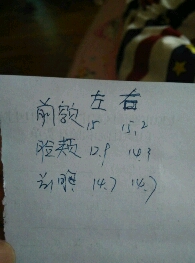 左 右
前额 15 15.2
脸颊 12.9 14.3
14.7 14.7